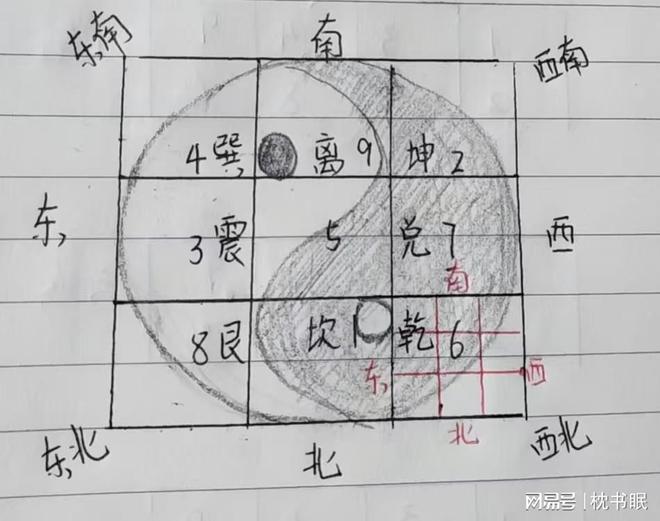 东南 南 西南
4巽 离9 坤2
东 3震 5 兑7 西
南
8艮 坎1 乾6
东 西
北
东北 北 西北
网易号 | 枕书眠